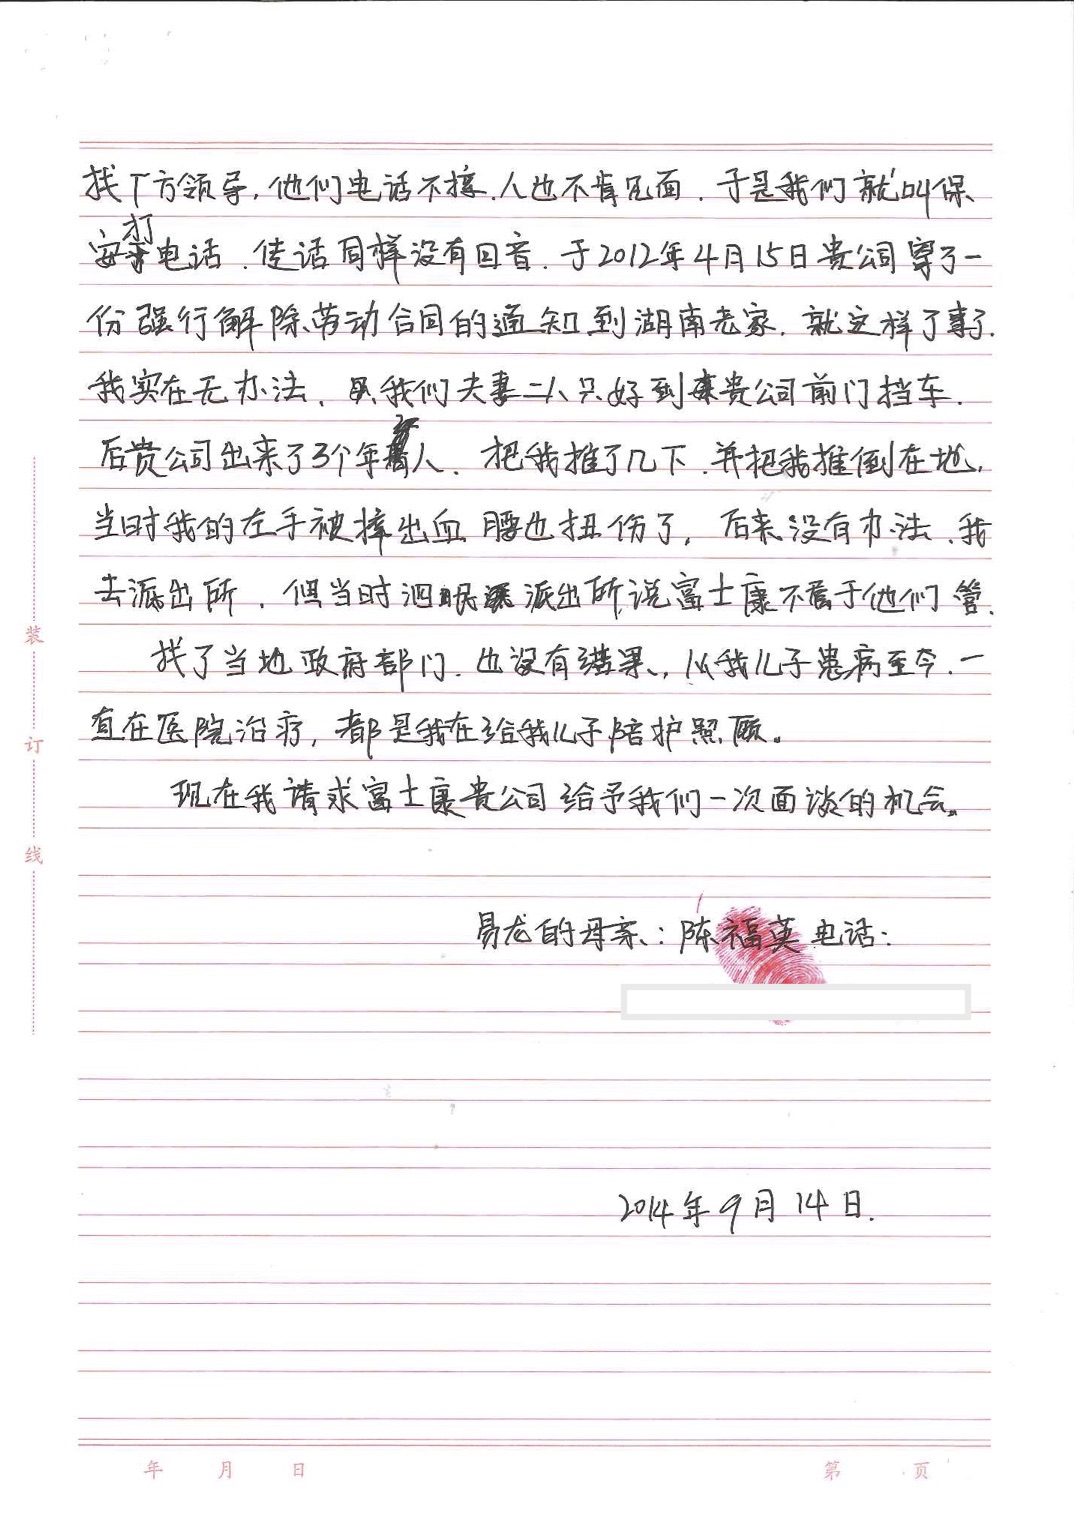 找厂方领导，他们电话不接．人也不肯见面．于是我们就叫保
安打电话．传话同样没有回音．于2012年4月15日贵公司寄了一
份强行解除劳动合同的通知到湖南老家．就这样了事了．
我实在无办法．我们夫妻二人只好到贵公司前门挡车．
后贵公司出来了3个年青人．把我推了几下．并把我推倒在地，
当时我的左手被摔出血 腰也扭伤了，后来没有办法．我
去派出所．但当时泗派出所说富士康不属于他们管．
找了当地政府部门．也没有结果，从我儿子患病至今．一
直在医院治疗，都是我在给我儿子陪护照顾。
现在我请求富士康贵公司给予我们一次面谈的机会。
易龙的母亲：陈福英 电话：
2014年9月14日．
装
订
线
年 月 日
第 页